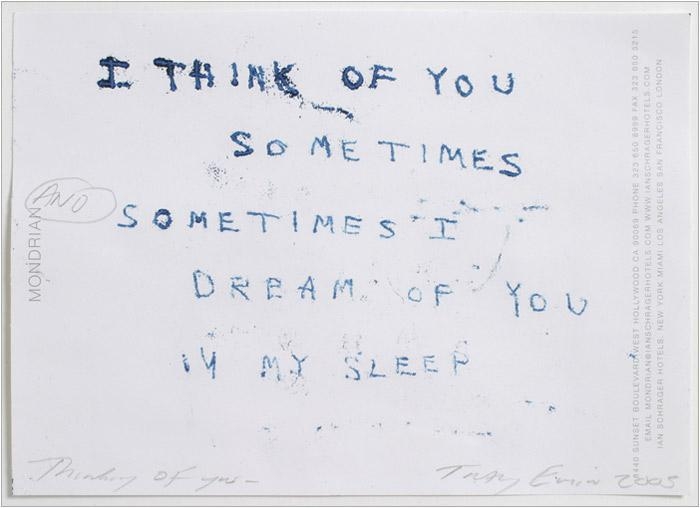 I THINK OF YOU
SOMETIMES
AND
SOMETIMES I
DREAM OF YOU
IN MY SLEEP
Thinking of you -
Tracey Emin 2005
MONDRIAN
8440 SUNSET BOULEVARD WEST HOLLYWOOD CA 90069 PHONE 323 650 8999 FAX 323 650 5215
EMAIL MONDRIAN@IANSCHRAGERHOTELS.COM WWW.IANSCHRAGERHOTELS.COM
IAN SCHRAGER HOTELS: NEW YORK MIAMI LOS ANGELES SAN FRANCISCO LONDON